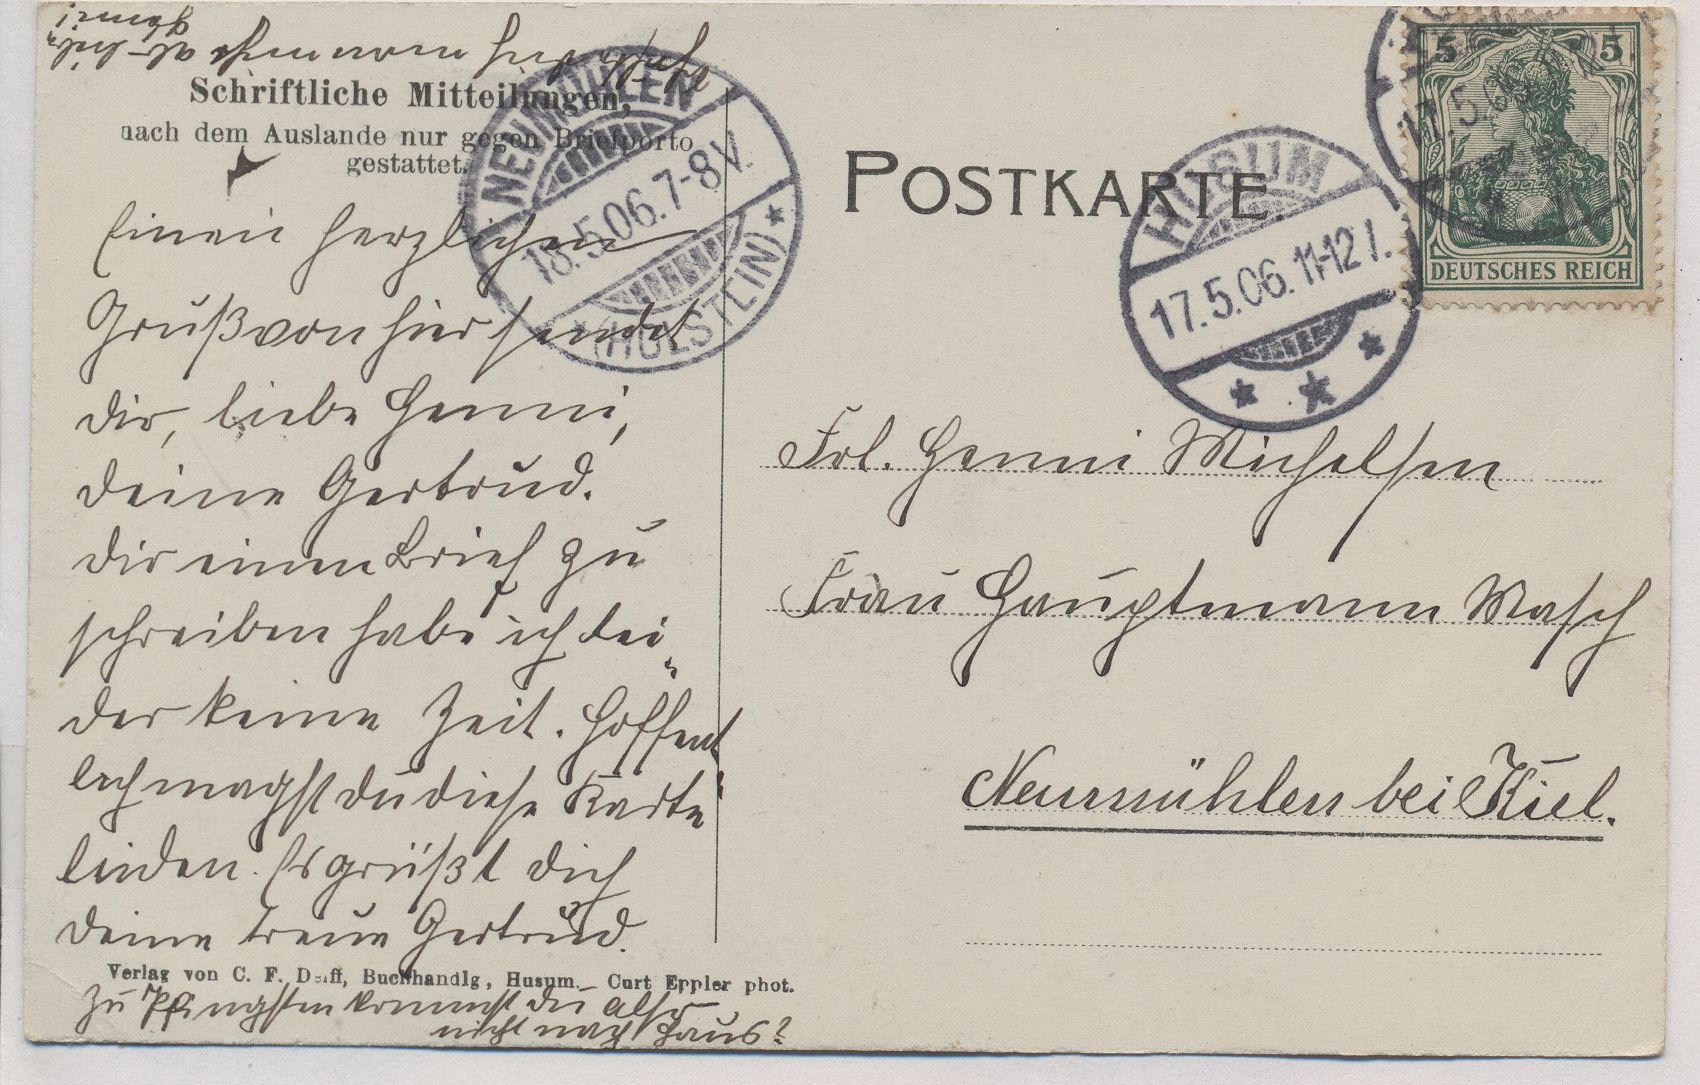 Schriftliche Mitteilungen,
nach dem Auslande nur gegen Briefporto
gestattet.
POSTKARTE.
NEUMÜHLEN
18.5.06.7-8V.
(HOLSTEIN)
HUSUM
17.5.06.11-12
17.5.06
5 5
DEUTSCHES REICH
Einen herzlichen
Gruß von hier sendet
dir, liebe Henni,
deine Gertrud.
Dir einen Brief zu
schreiben habe ich lei-
der keine Zeit. Hoffent-
lich magst du diese Karte
leiden. Es grüßt dich
deine treue Gertrud.
Zu Pfingsten kommst du also
nicht nach Haus?
Frl. Henni Michelsen
Frau Hauptmann Masch
Neumühlen bei Kiel.
Verlag von C. F. Delff, Buchhandlg, Husum. Curt Eppler phot.